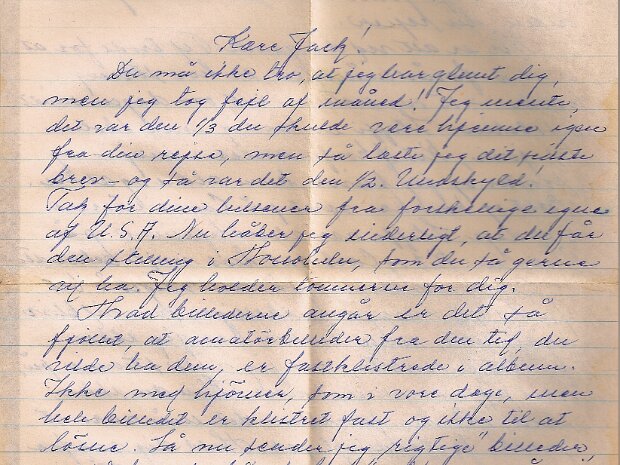 Kære Jack!
Du må ikke tro, at jeg har glemt dig,
men jeg tog fejl af måned! Jeg mente,
det var den 1/3 du skulde være hjemme igen
fra din rejse, men så læste jeg dit sidste
brev – og så var det den 1/2. Undskyld!
Tak for dine hilsener fra forskellige egne
af U.S.A. Nu håber jeg inderligt, at du får
den stilling i Honolulu, som du så gerne
vil ha. Jeg holder tommerne for dig.
Hvad billederne angår er det så
fjollet, at amatørbilleder fra den tid, du
vilde ha dem, er fastklistrede i album.
Ikke med hjörner, som i vore dage, men
hele billedet er klistret fast og ikke til at
løsne. Så nu sender jeg "rigtige" billeder,